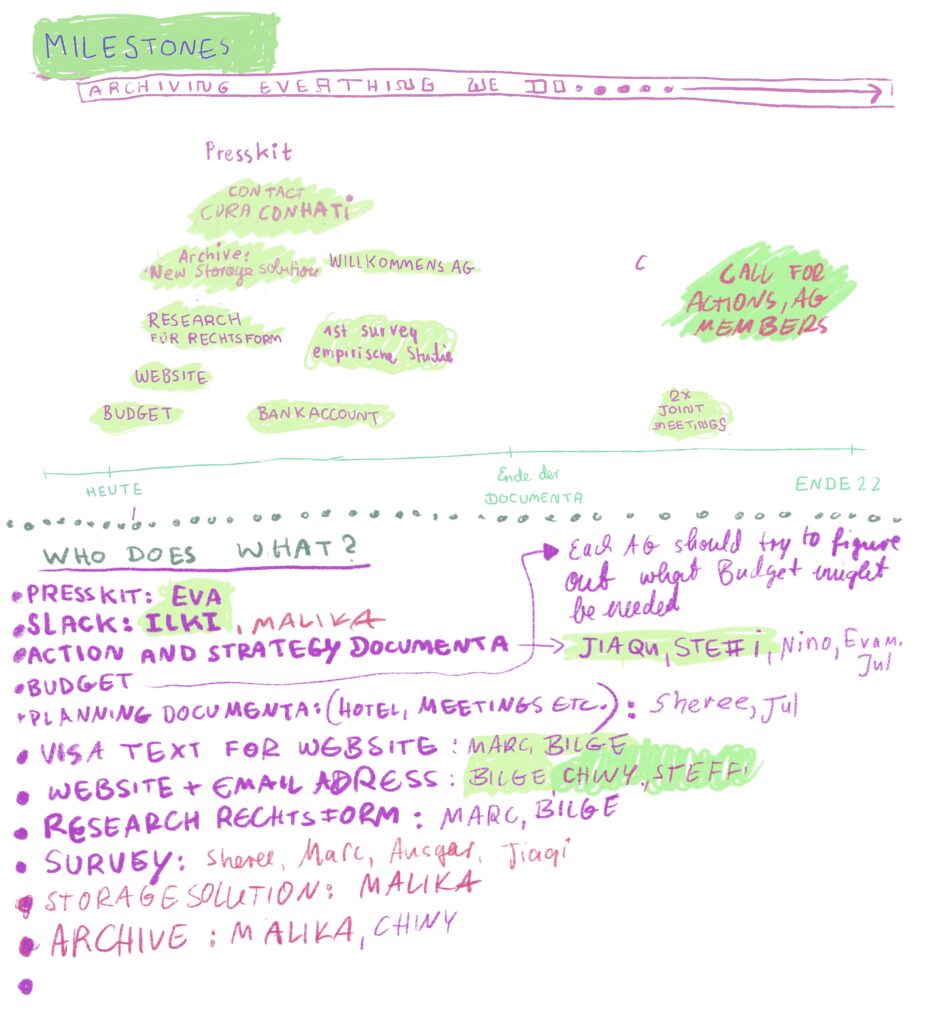 MILESTONES
ARCHIVING EVERYTHING WE DO
Presskit
CONTACT
CURA CONHATI
Archive:
New Storage solution
WILLKOMMENS AG
C
CALL FOR
ACTIONS, AG
MEMBERS
RESEARCH
FÜR RECHTSFORM
1st survey
empirische Studie
WEBSITE
BUDGET
BANKACCOUNT
2X
JOINT
MEETINGS
HEUTE
Ende der
DOCUMENTA
ENDE 22
WHO DOES WHAT?
Each AG should try to figure
out what Budget might
be needed
PRESSKIT: EVA
SLACK: ILKI, MALIKA
ACTION AND STRATEGY DOCUMENTA → JIAQU, STEFFI, Nino, Eva m.
Jul
BUDGET
PLANNING DOCUMENTA: (HOTEL, MEETINGS ETC.): Sheree, Jul
VISA TEXT FOR WEBSITE: MARC, BILGE
WEBSITE + EMAIL ADRESS: BILGE, CHINY, STEFFI
RESEARCH RECHTSFORM: MARC, BILGE
SURVEY: Sheree, Marc, Ansgar, Jiaqi
STORAGE SOLUTION: MALIKA
ARCHIVE: MALIKA, CHINY